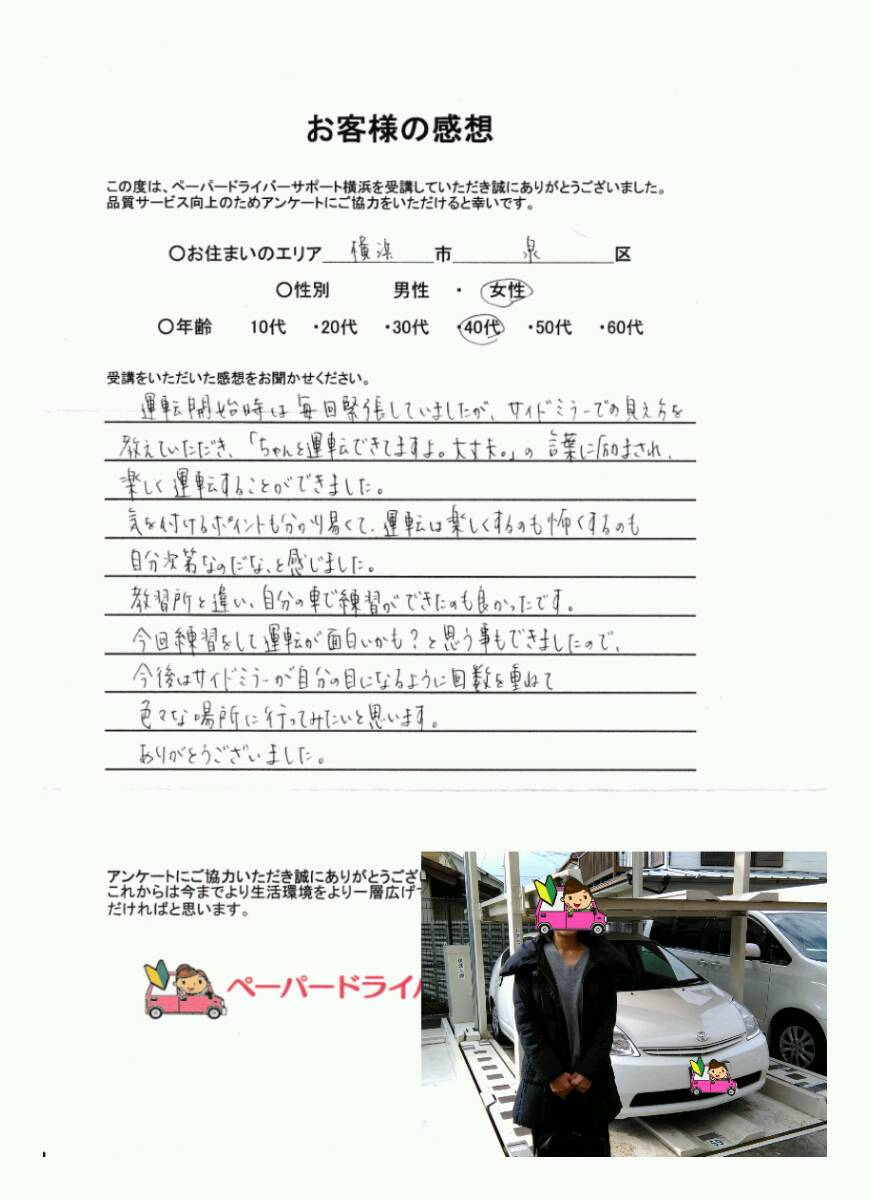 お客様の感想
この度は、ペーパードライバーサポート横浜を受講していただき誠にありがとうございました。
品質サービス向上のためアンケートにご協力をいただけると幸いです。
○お住まいのエリア 横浜 市 泉 区
○性別 男性 ・ 女性
○年齢 10代 ・20代 ・30代 ・40代 ・50代 ・60代
受講をいただいた感想をお聞かせください。
運転開始時は毎回緊張していましたが、サイドミラーでの見え方を
教えていただき、「ちゃんと運転できてますよ。大丈夫。」の言葉に励まされ、
楽しく運転することができました。
気を付けるポイントも分かり易くて、運転は楽しくするのも怖くするのも
自分次第なのだな、と感じました。
教習所と違い、自分の車で練習ができたのも良かったです。
今回練習をして運転が面白いかも?と思う事もできましたので、
今後はサイドミラーが自分の目になるように回数を重ねて
色々な場所に行ってみたいと思います。
ありがとうございました。
アンケートにご協力いただき誠にありがとうござい
これからは今までより生活環境をより一層広げて
だければと思います。
ペーパードライバ
59